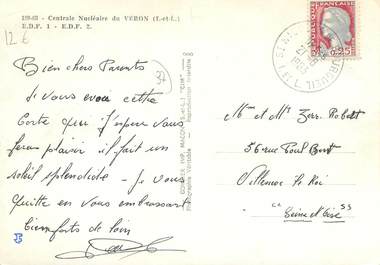 139-63 - Centrale Nucléaire du VERON (I.-et-L.)
E.D.F. 1 - E.D.F. 2.
12 €
37
Bien chers Parents
Je vous envoi cette
Carte qui j'espère vous
feras plaisir il fait un
soleil splendide - Je vous
quitte en vous embrassant
bien forts de loin
COMBIER IMP. MACON (S.-et-L.) "CIM"
Photographie Véritable - Reproduction Interdite
REPUBLIQUE FRANÇAISE
0,25
BOURGUEIL
1963
Mr et Mme Zerr. Robert
56 rue Paul Bert
Villeneuve le Roi
Seine et Oise